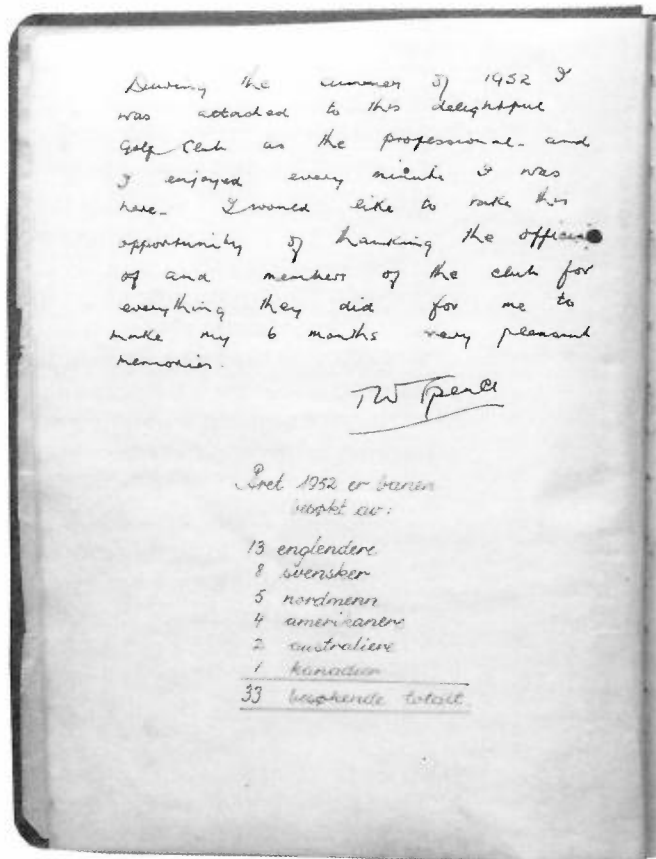 During the summer of 1952 I
was attached to this delightful
Golf Club as the professional - and
I enjoyed every minute I was
here. I would like to take this
opportunity of thanking the officers
of and members of the club for
everything they did for me to
make my 6 months very pleasant
memories.
TW Spence
Året 1952 er banen
besøkt av:
13 englendere
8 svensker
5 nordmenn
4 amerikanere
2 australiere
1 kanadier
33 besøkende totalt